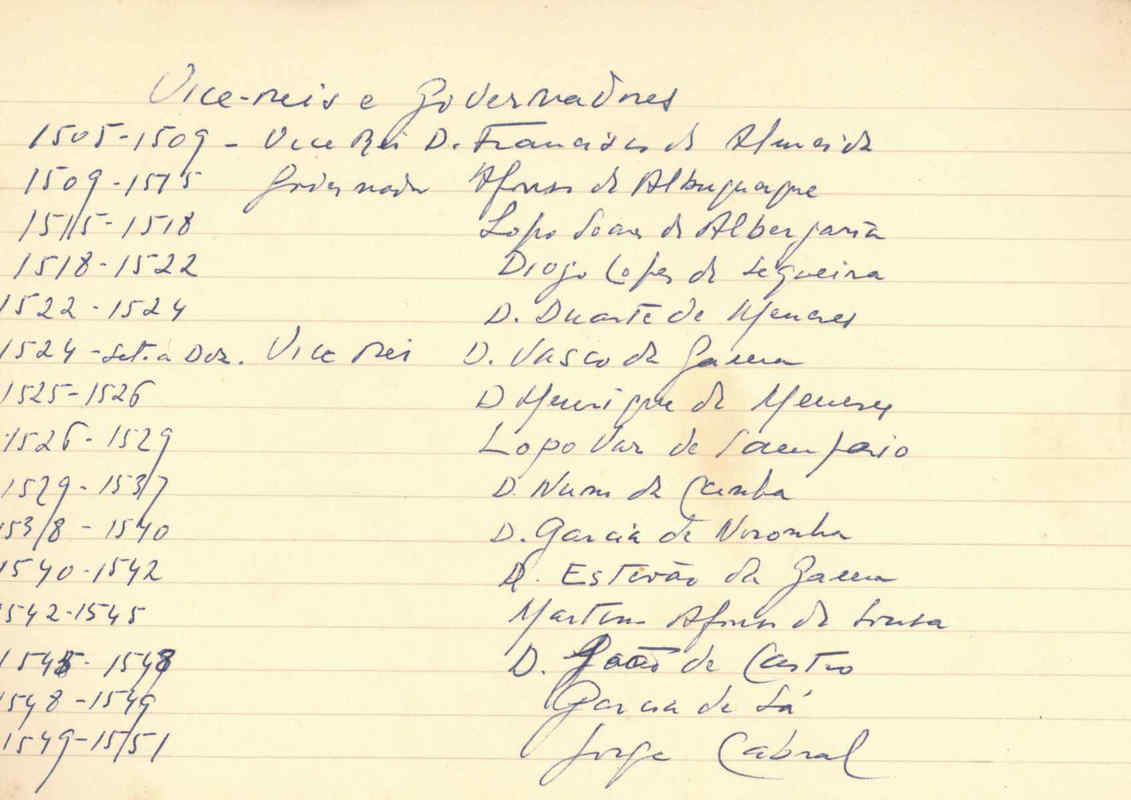 Vice-reis e Governadores
1505-1509 - Vice Rei D. Francisco de Almeida
1509-1515 Governador Afonso de Albuquerque
1515-1518 Lopo Soares de Albergaria
1518-1522 Diogo Lopes de Sequeira
1522-1524 D. Duarte de Meneses
1524 - Set. a Dez. Vice Rei D. Vasco da Gama
1525-1526 D Henrique de Meneses
1526-1529 Lopo Vaz de Sampaio
1529-1537 D. Nuno da Cunha
1538-1540 D. Garcia de Noronha
1540-1542 D. Estevão da Gama
1542-1545 Martim Afonso de Sousa
1545-1548 D. João de Castro
1548-1549 Garcia de Sá
1549-1551 Jorge Cabral